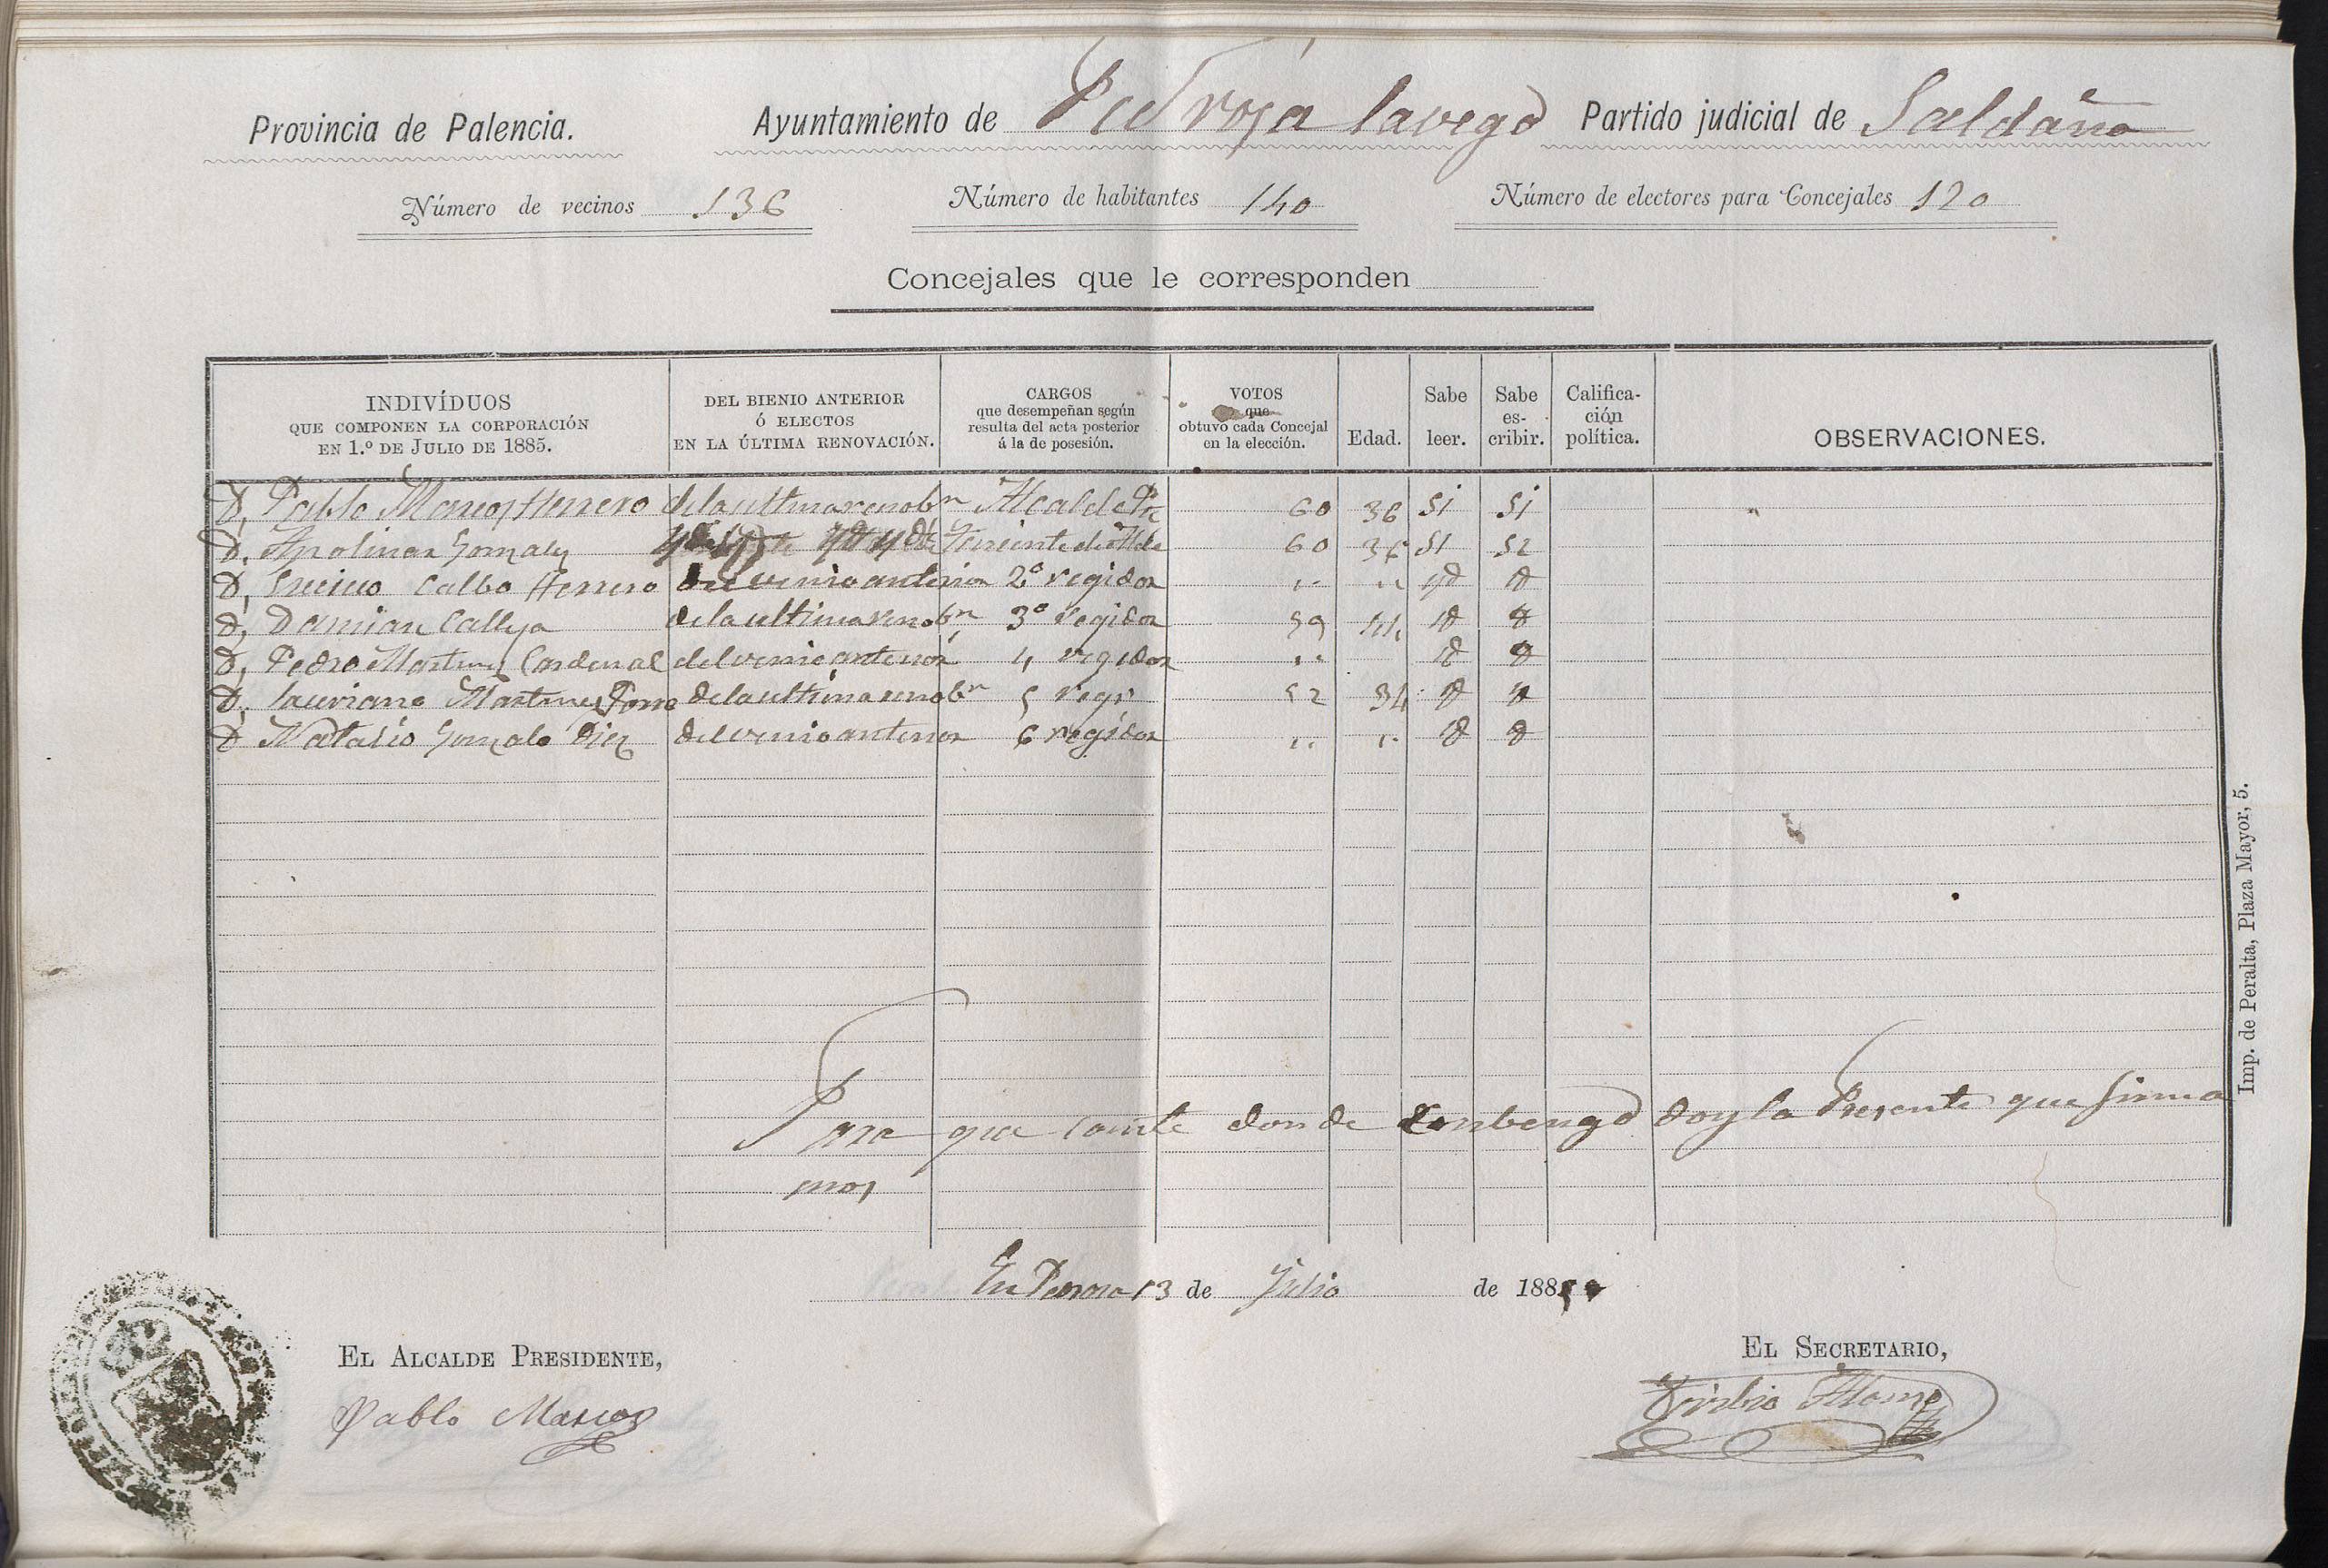 Provincia de Palencia. Ayuntamiento de Pedrosa la vega Partido judicial de Saldaña
Número de vecinos 136 Número de habitantes 140 Número de electores para Concejales 120
Concejales que le corresponden
INDIVÍDUOS QUE COMPONEN LA CORPORACIÓN EN 1.º DE JULIO DE 1885. DEL BIENIO ANTERIOR Ó ELECTOS EN LA ÚLTIMA RENOVACIÓN. CARGOS que desempeñan según resulta del acta posterior á la de posesión. VOTOS que obtuvo cada Concejal en la elección. Edad. Sabe leer. Sabe es-cribir. Califica-ción política. OBSERVACIONES.
D, Pablo Marcos Herrero de la ultima renobn Alcalde Pte 60 36 si si
D. Apolinar Gonzalez Teniente de Alde 60 36 si si
D, Calbo Herrero del venio anterior 2º regidor " " yd yd
D, Damian Calleja de la ultima renobn 3º regidor 59 44 yd yd
D, Pedro Martinez Cardenal del venio anterior 4 regidor " yd yd
D, Lauriano Martinez de la ultima renobn 5 regr 52 34 yd yd
D Natalio Gonzalo Diez del venio anterior 6 regidor " " yd yd
Para que conste donde conbenga doy la Presente que firma
mos
En Pedrosa 13 de Julio de 1885
EL ALCALDE PRESIDENTE, EL SECRETARIO,
Pablo Marcos Toribio Alonso
Imp. de Peralta, Plaza Mayor, 5.